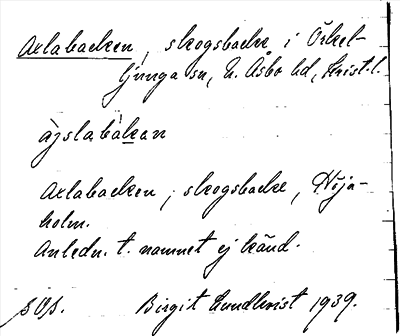 Axlabacken, skogsbacke i Örkel-
ljunga sn, N. Åsbo hd, Krist. l.
Axlabacken, skogsbacke, Höja-
holm.
Anledn. t. namnet ej känd.
Birgit Lundkvist 1939.